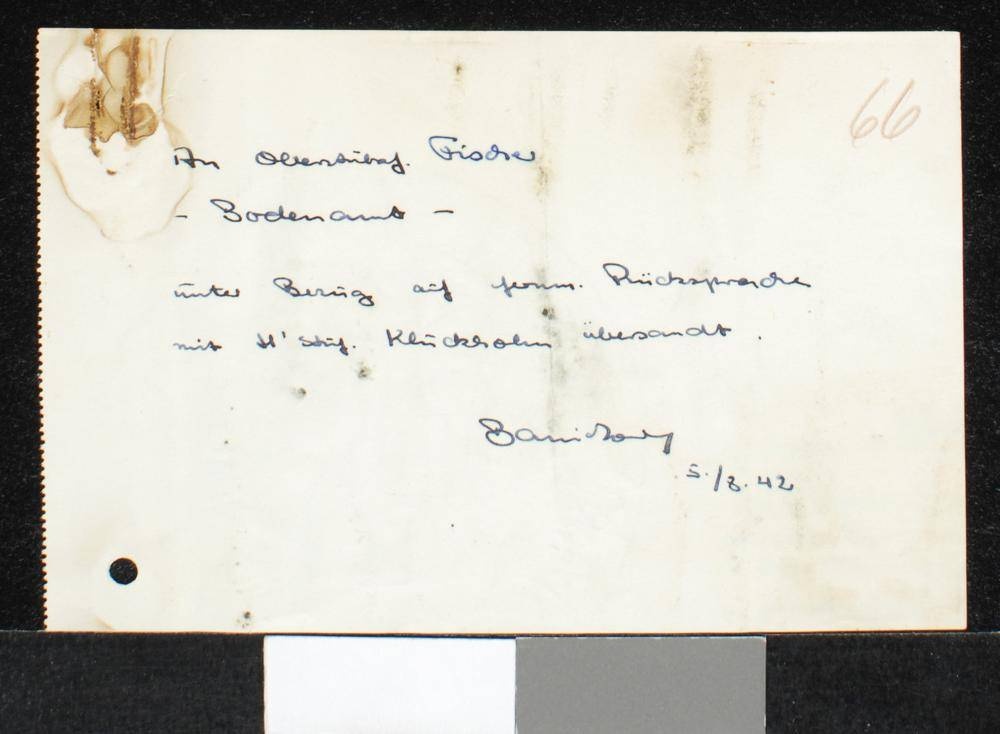 66
An Oberstubaf. Fischer
- Bodenamt -
unter Bezug auf fernm. Rücksprache
mit H'Stuf. Kluckhohn übersandt.
5./8. 42